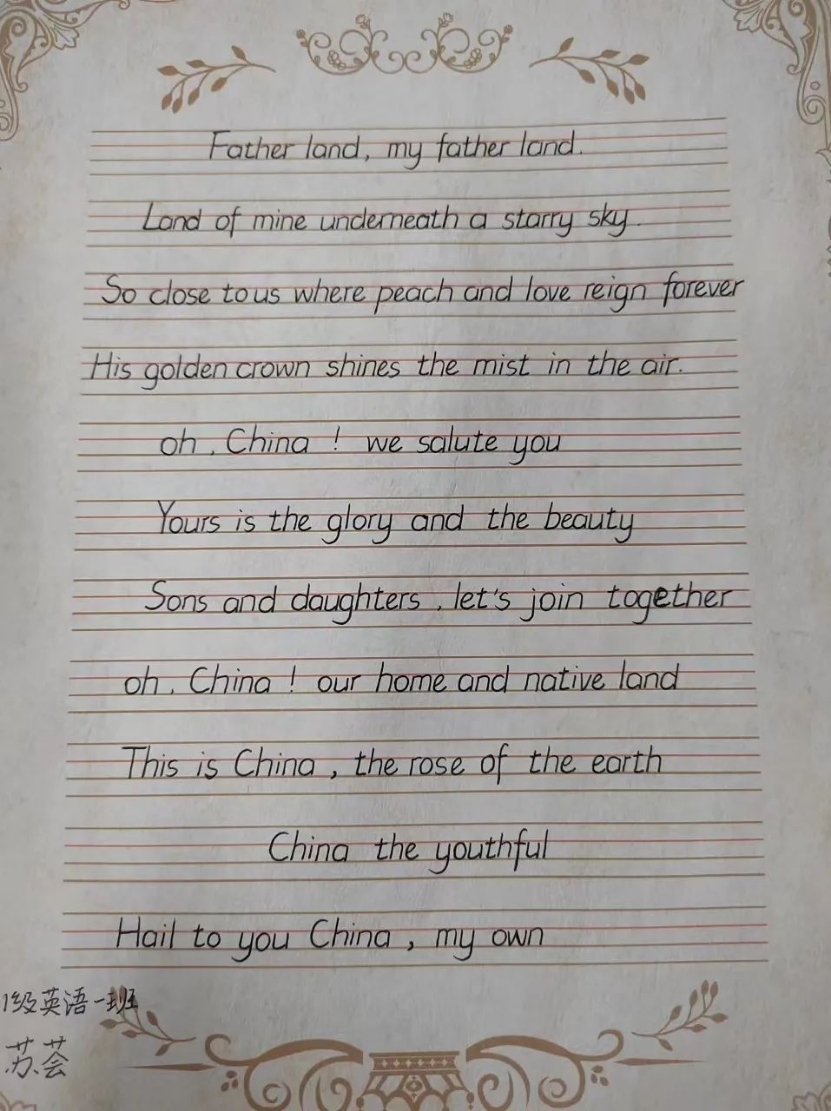 Father land, my father land.
Land of mine underneath a starry sky.
So close to us where peach and love reign forever
His golden crown shines the mist in the air.
oh, China ! we salute you
Yours is the glory and the beauty
Sons and daughters, let's join together
oh, China ! our home and native land
This is China, the rose of the earth
China the youthful
Hail to you China, my own
1级英语一班
苏荟